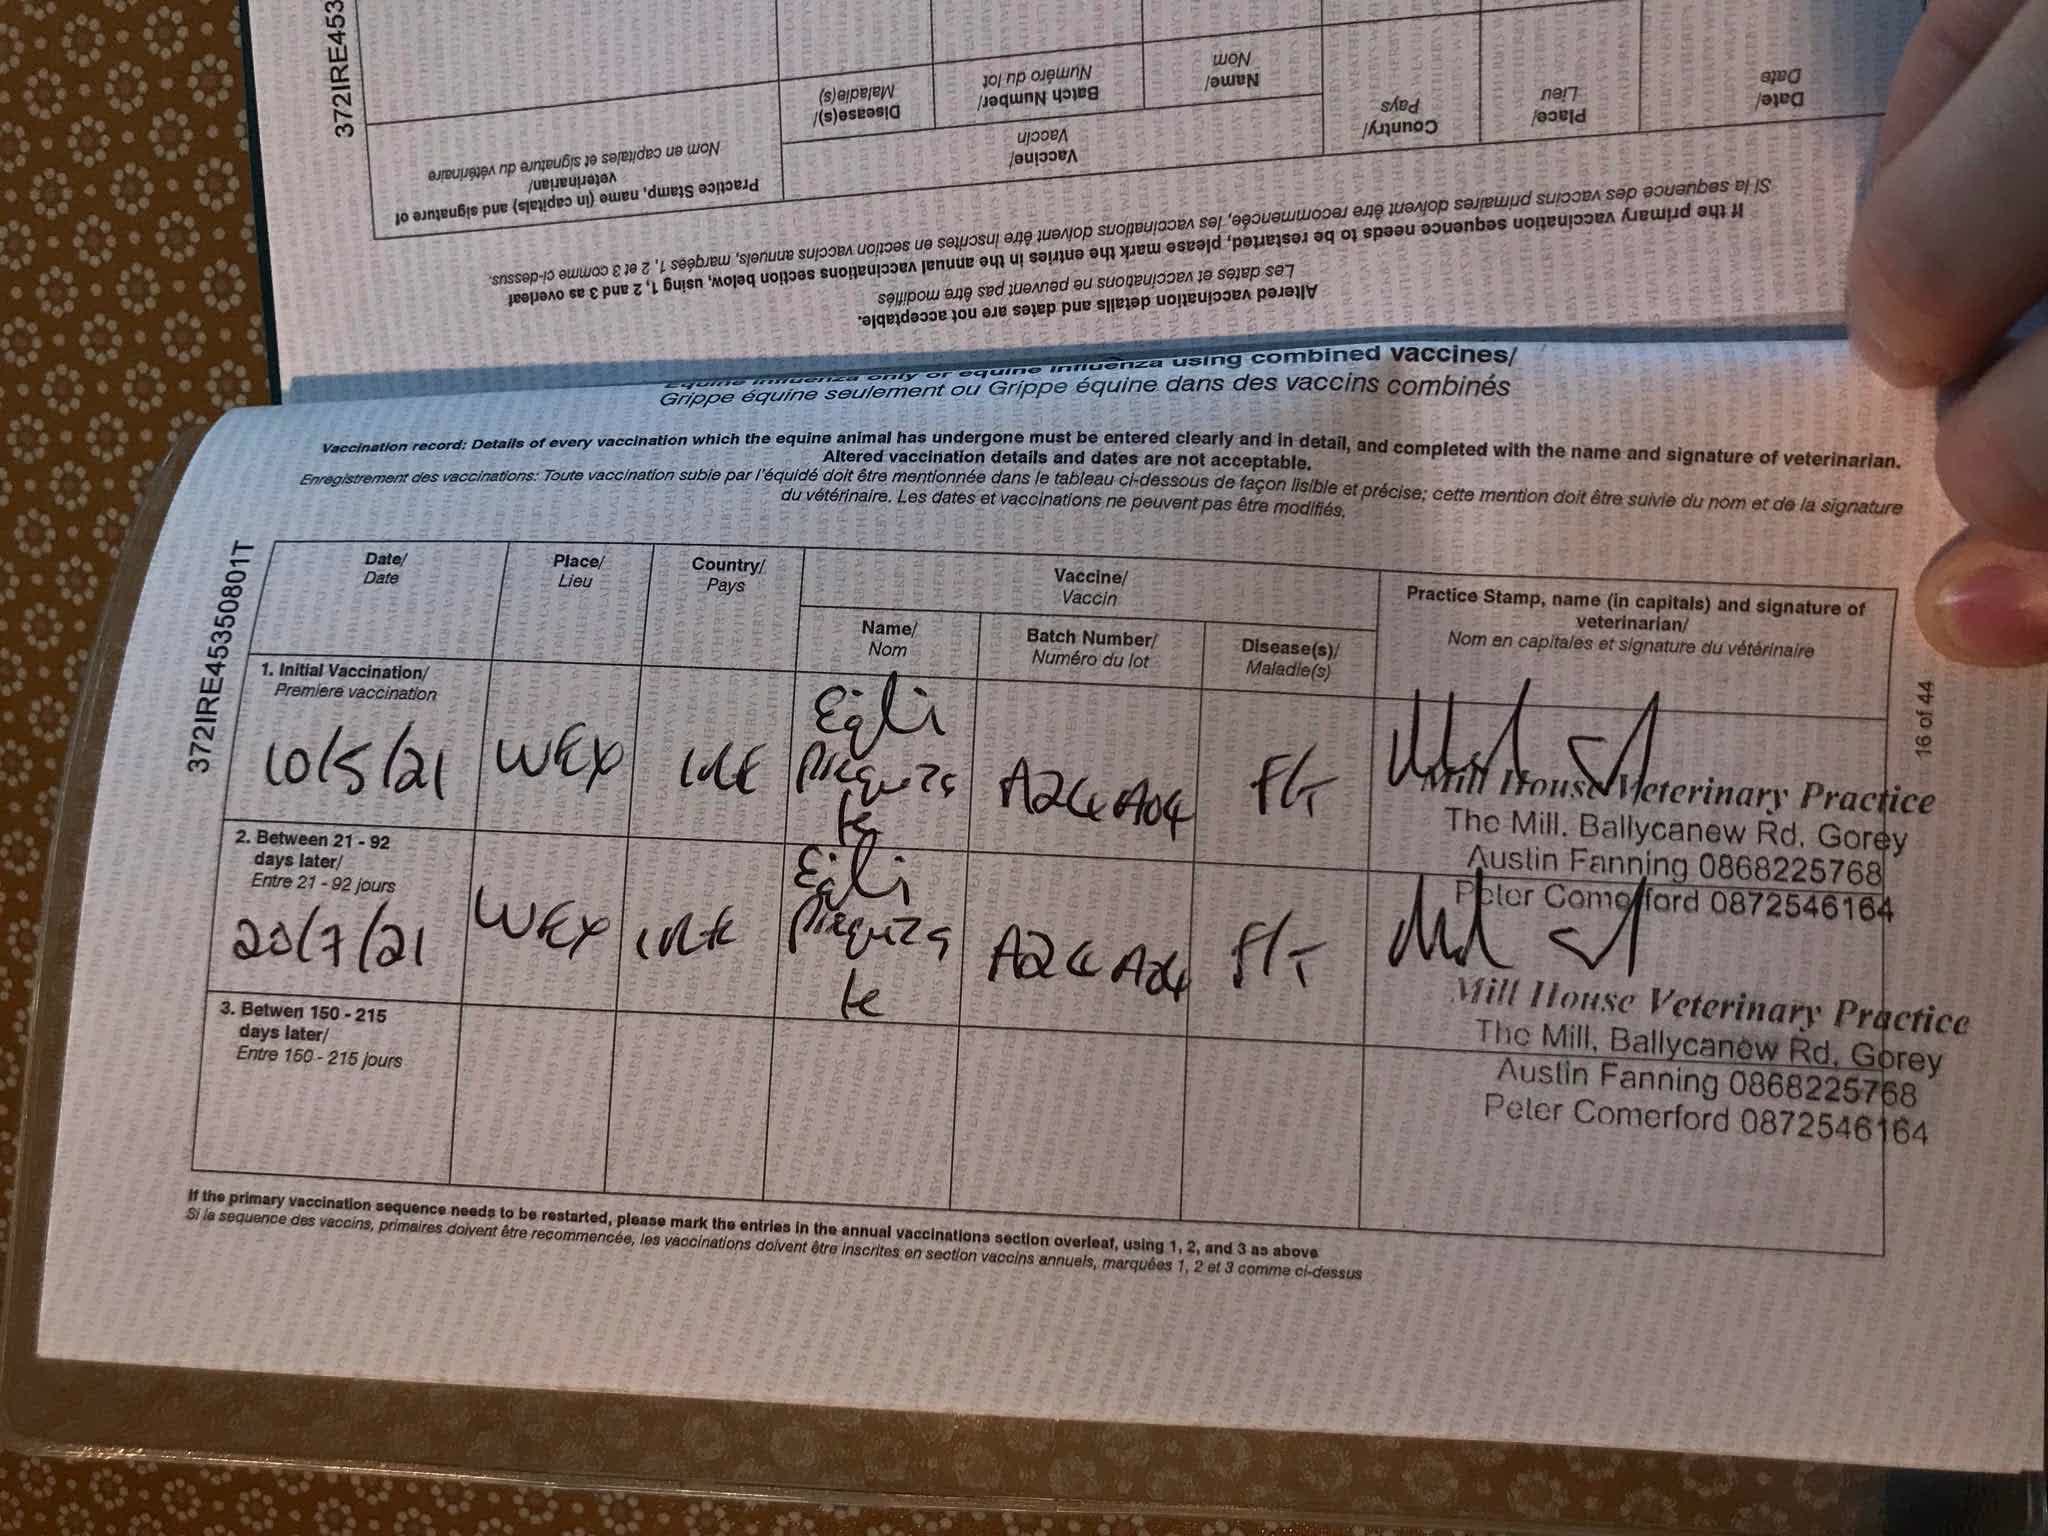 372IRE453
Altered vaccination details and dates are not acceptable.
Les dates et vaccinations ne peuvent pas être modifiés
If the primary vaccination sequence needs to be restarted, please mark the entries in the annual vaccinations section below, using 1, 2 and 3 as overleaf
Si la sequence des vaccins primaires doivent être recommencée, les vaccinations doivent être inscrites en section vaccins annuels, marqées 1, 2 et 3 comme ci-dessus.
Date/
Date
Place/
Lieu
Country/
Pays
Vaccine/
Vaccin
Name/
Nom
Batch Number/
Numéro du lot
Disease(s)/
Maladie(s)
Practice Stamp, name (in capitals) and signature of
veterinarian/
Nom en capitales et signature du vétérinaire
Equine influenza only or equine influenza using combined vaccines/
Grippe équine seulement ou Grippe équine dans des vaccins combinés
Vaccination record: Details of every vaccination which the equine animal has undergone must be entered clearly and in detail, and completed with the name and signature of veterinarian.
Altered vaccination details and dates are not acceptable.
Enregistrement des vaccinations: Toute vaccination subie par l'équidé doit être mentionnée dans le tableau ci-dessous de façon lisible et précise; cette mention doit être suivie du nom et de la signature
du vétérinaire. Les dates et vaccinations ne peuvent pas être modifiés.
372IRE45350801T
Date/
Date
Place/
Lieu
Country/
Pays
Vaccine/
Vaccin
Name/
Nom
Batch Number/
Numéro du lot
Disease(s)/
Maladie(s)
Practice Stamp, name (in capitals) and signature of
veterinarian/
Nom en capitales et signature du vétérinaire
1. Initial Vaccination/
Premiere vaccination
10/5/21
WEX
IRE
F/T
Mill House Veterinary Practice
The Mill, Ballycanew Rd, Gorey
Austin Fanning 0868225768
Peter Comerford 0872546164
2. Between 21 - 92
days later/
Entre 21 - 92 jours
20/7/21
WEX
IRE
F/T
Mill House Veterinary Practice
The Mill, Ballycanew Rd, Gorey
Austin Fanning 0868225768
Peter Comerford 0872546164
3. Betwen 150 - 215
days later/
Entre 150 - 215 jours
If the primary vaccination sequence needs to be restarted, please mark the entries in the annual vaccinations section overleaf, using 1, 2, and 3 as above
Si la sequence des vaccins, primaires doivent être recommencée, les vaccinations doivent être inscrites en section vaccins annuels, marquées 1, 2 et 3 comme ci-dessus
16 of 44